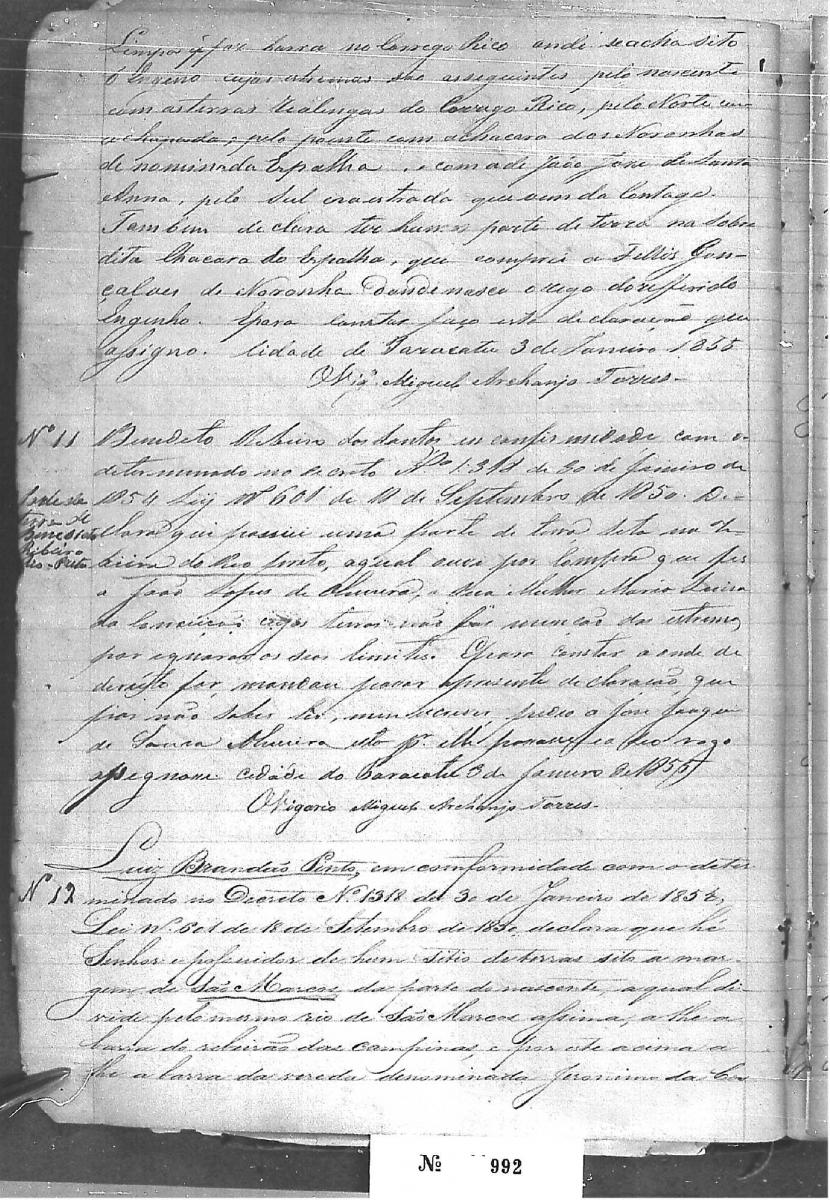 Limpos q faz barra no Corrego Rico onde se acha sito
o Engeno cujas estremas são as seguintes pelo nascente
com as terras Rialengas do Corrego Rico, pelo Norte com
a chapada; pelo poente com a chacara dos Noronhas
de nominada Espalha, e com a de João Jose de Santa
Anna, pelo Sul com a estrada que vem da Contage.
Tambem declara ter huma parte de terra na sobre
dita Chacara do Espalha, que comprei a Fellis Gon
çalves de Noronha donde nasce o rego do refferido
Engenho. E para constar faço esta declaração que
assigno. Cidade de Paracatu 3 de Janeiro 1858
O Vigº. Miguel Archanjo Torres
Nº 11 Benedito Ribeiro dos Santos em conformidade com o
determinado no decreto Nº 1.318 de 30 de Janeiro de
1854 Ley nº 601 de 18 de Septembro de 1850. De-
clara que possue uma parte de terra sita na
do Rio preto, a qual ouve por Compra que fes
a João Lopes de Oliveira, e sua Mulher Maria Luisa
da Conceição; cujas terras não faz menção das estremas
por ignorar os seos limites. E para constar a onde de
direito for, mandou passar a presente declaração, que
por não saber ler, nem screver, pedio a Jose Joaqui
de Souza Oliveira este pr. Mi passasse e a seo rogo
assegnase cidade do Paracatu 3 de Janeiro de 1858
Benedicto
Ribeiro
Rio-Preto
O Vigario Miguel Archanjo Torres
Luiz Brandão Pinto, em conformidade com o deter
Nº 12 minado no Decreto Nº 1318 de 30 de Janeiro de 1854,
Lei Nº 601 de 18 de Setembro de 1850, declara que hé
Senhor e possuidor de hum sitio de terras sito a mar-
gem de São Marcos, da parte do nascente, a qual di-
vide pelo mesmo rio de São Marcos assima, athe a
barra do ribeirão das campinas, e por este acima a
the a barra da vereda denominada Jeronimo da Co
Nº 992